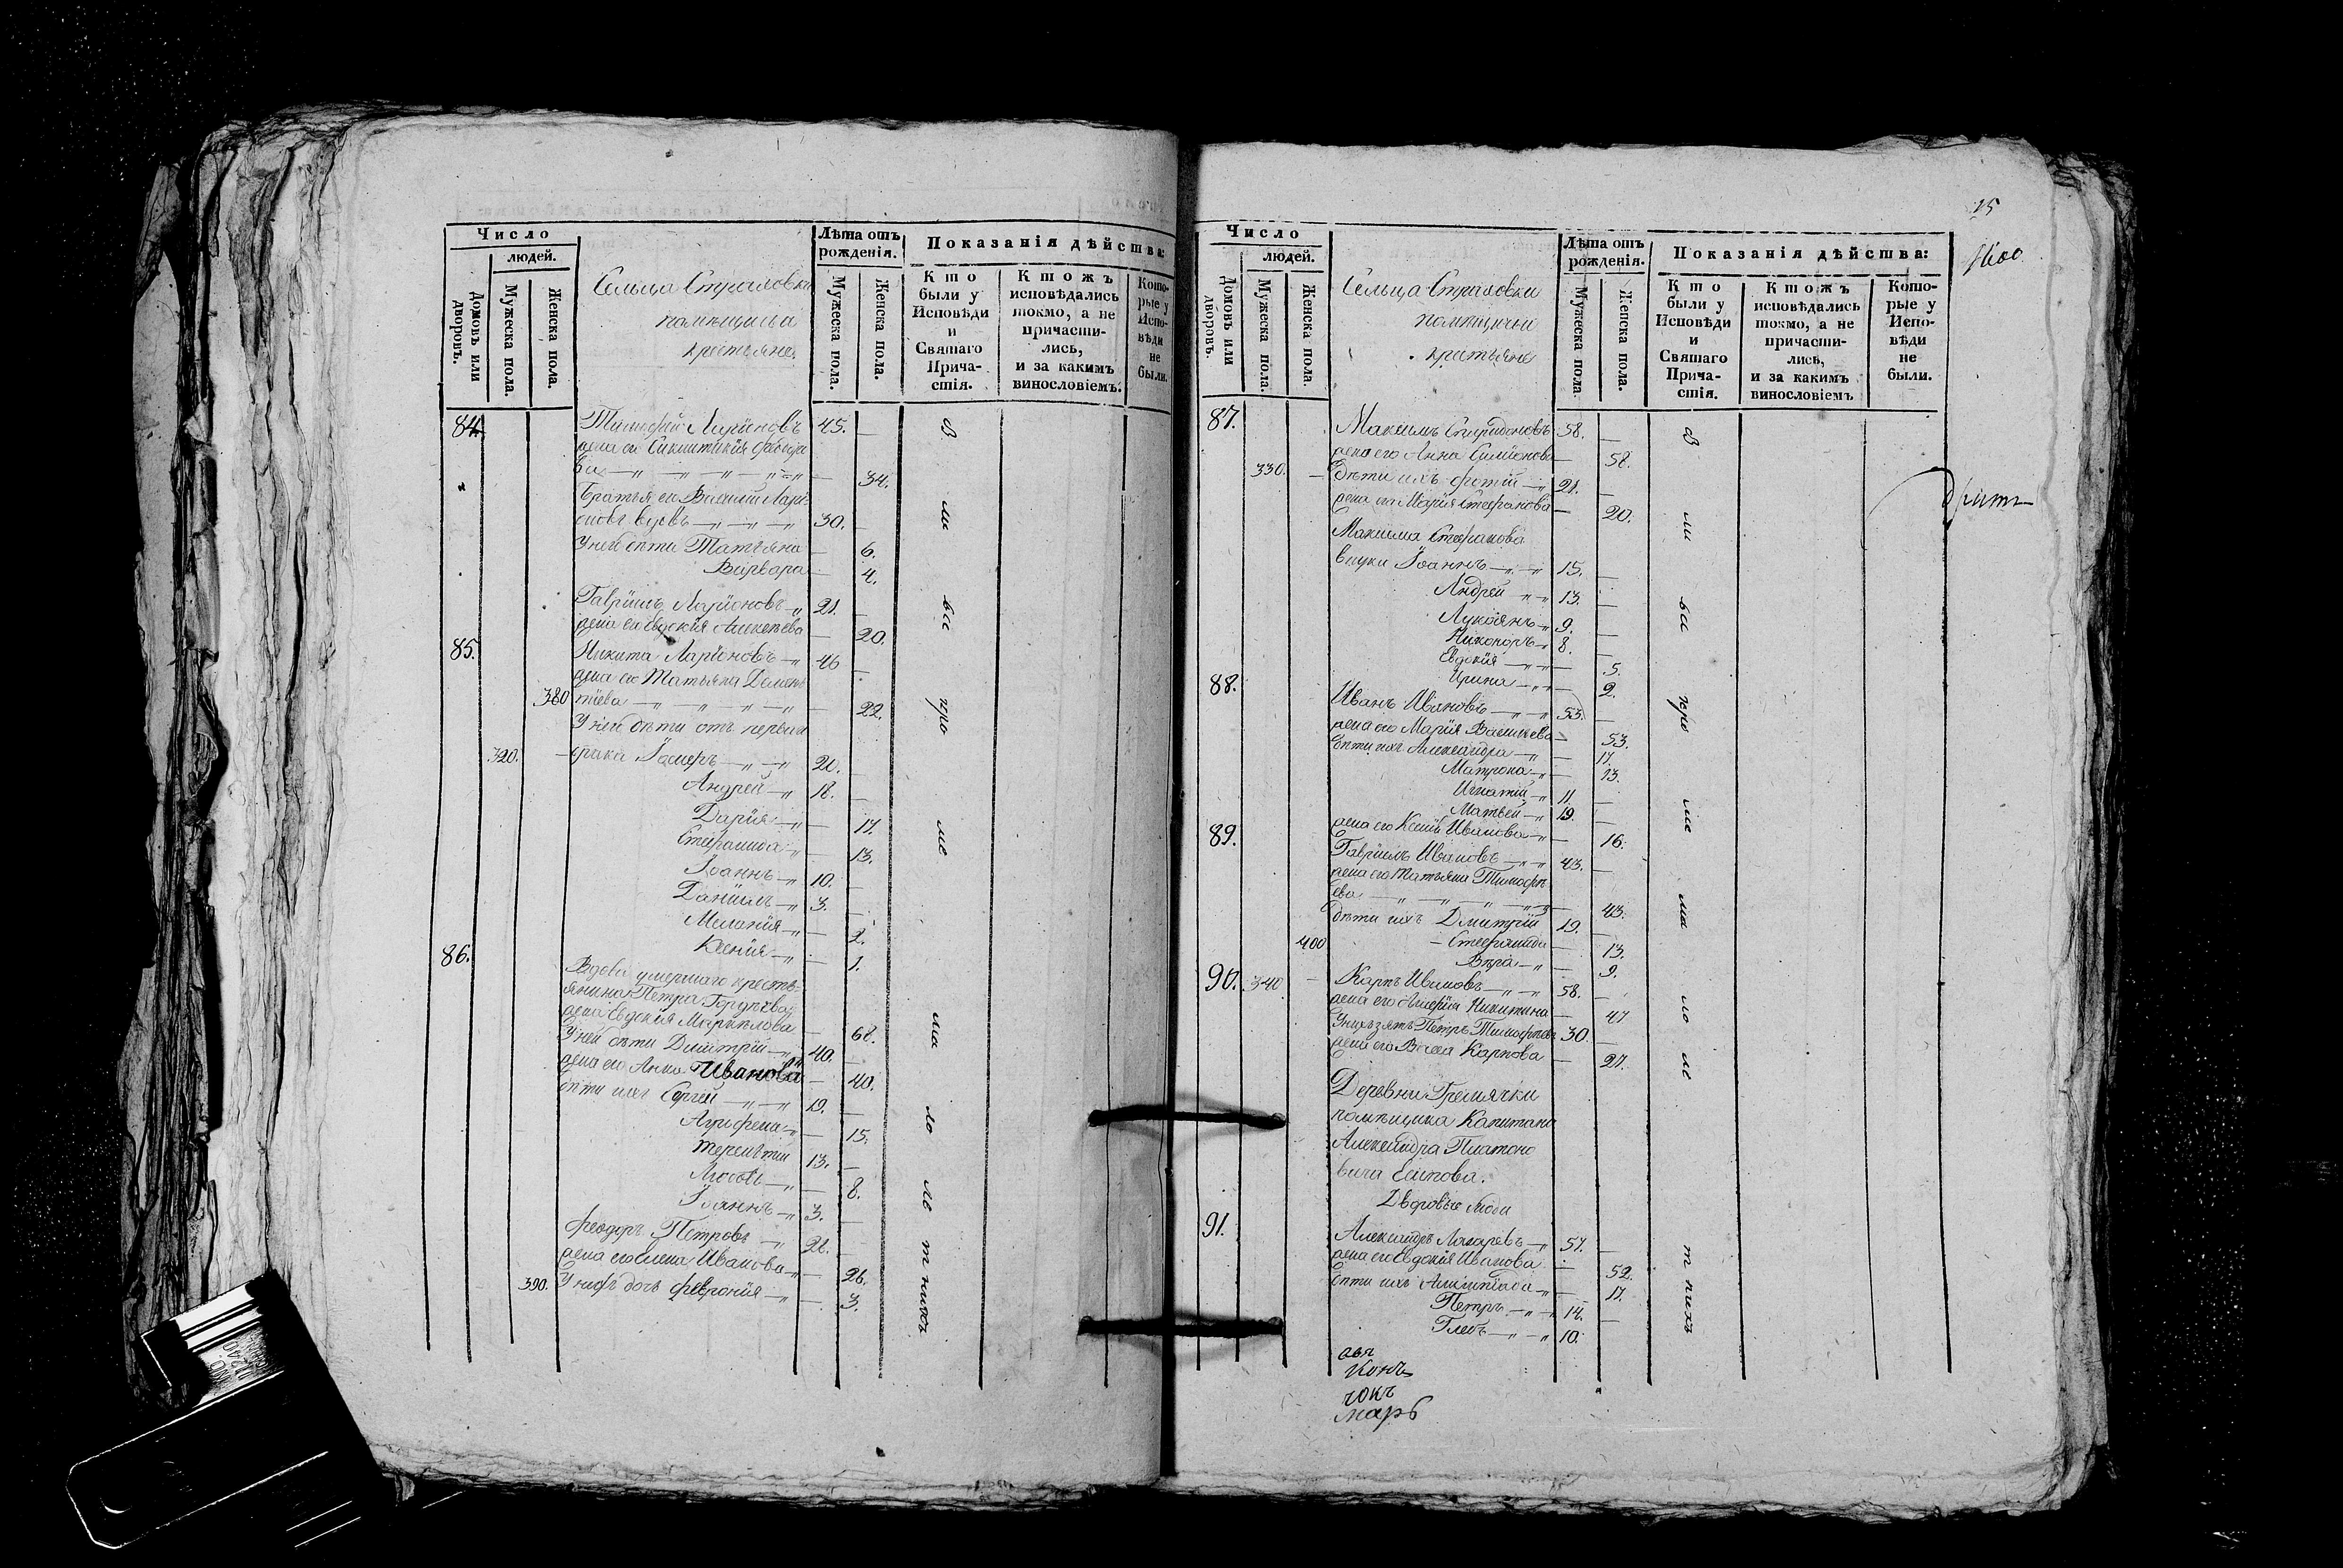 Число
людей.
Домовъ или дворовъ.
Мужеска пола.
Женска пола.
Сельца Страховки
помѣщичьи
крестьяне
Лѣта отъ рожденія.
Мужеска пола.
Женска пола.
Показанія дѣйства:
Кто были у Исповѣди и Святаго Прича-стія.
Ктожъ исповѣдались токмо, а не причасти-лись, и за какимъ винословіемъ.
Кото-рые у Испо-вѣди не были.
84. Тимофей Ларіоновъ 45.
жена его
34.
Братья его Василий Лари-
оновъ вдовъ 30.
У ней дѣти Татьяна 6.
Варвара 4.
Гавріилъ Ларіоновъ 21.
жена его Евдокія Алексѣева 20.
85. Никита Ларіоновъ 46
жена его Татьяна Демен-
380 тіева 22.
У ней дѣти отъ перваго
320. брака
Андрей 18.
Дарія 17.
Стефанида 13.
Іоаннъ 10.
Даніилъ 3.
Меланія 2.
Ксенія 1.
86. Вдова умершаго кресть-
янина Петра Гордѣева
жена Евдокія 68.
У ней дѣти Димитрій 40.
жена его Анна Иванова 40.
дѣти ихъ Сергей 19.
Агрифена 15.
Терентій 13.
Любовь 8.
Іоаннъ 3.
Феодоръ Петровъ
жена его Елена Иванова 26.
390. У нихъ дочь Феврониія 3.
25
Число
людей.
Домовъ или дворовъ.
Мужеска пола.
Женска пола.
Сельца Страховки
помѣщичьи
крестьяне
Лѣта отъ рожденія.
Мужеска пола
Женска пола.
Показанія дѣйства:
Кто были у Исповѣди и Святаго Прича-стія.
Ктожъ исповѣдались токмо, а не причасти-лись, и за какимъ винословіемъ
Кото-рые у Испо-вѣди не были.
87. Максимъ Спиридоновъ 58.
жена его Анна Симіонова 58.
330. дѣти ихъ Фотій 21.
жена его Марія Стефанова 20.
Максима Стефанова
внуки Іоаннъ 15.
Андрей 13.
Лукіянъ 9.
Никоноръ 8.
Евдокія 5.
Ирина 2.
88. Иванъ Ивановъ 53.
жена его Марія Васильева 53.
дѣти ихъ Александра 17.
Матрона 13.
Игнатій 11
Матвей 19.
жена его Ксенія Иванова 16.
89. Гавріилъ Ивановъ 43.
жена его Татьяна Тимофѣ
ева 43.
дѣти ихъ Дмитрій 19.
400 Стефанида 13.
Вѣра 9.
90. 340 Карпъ Ивановъ 58.
жена его Никитина 47
У нихъ зять Петръ Тимофѣевъ 30.
жена его Васса Карпова 27.
Деревни Гремячки
помѣщика Капитана
Александра Платоно
вича Есипова.
Дворовые люди
91. Александръ Лазаревъ 57.
жена его Евдокія Иванова 52.
дѣти ихъ 17.
Петръ 14.
Глебъ 10.